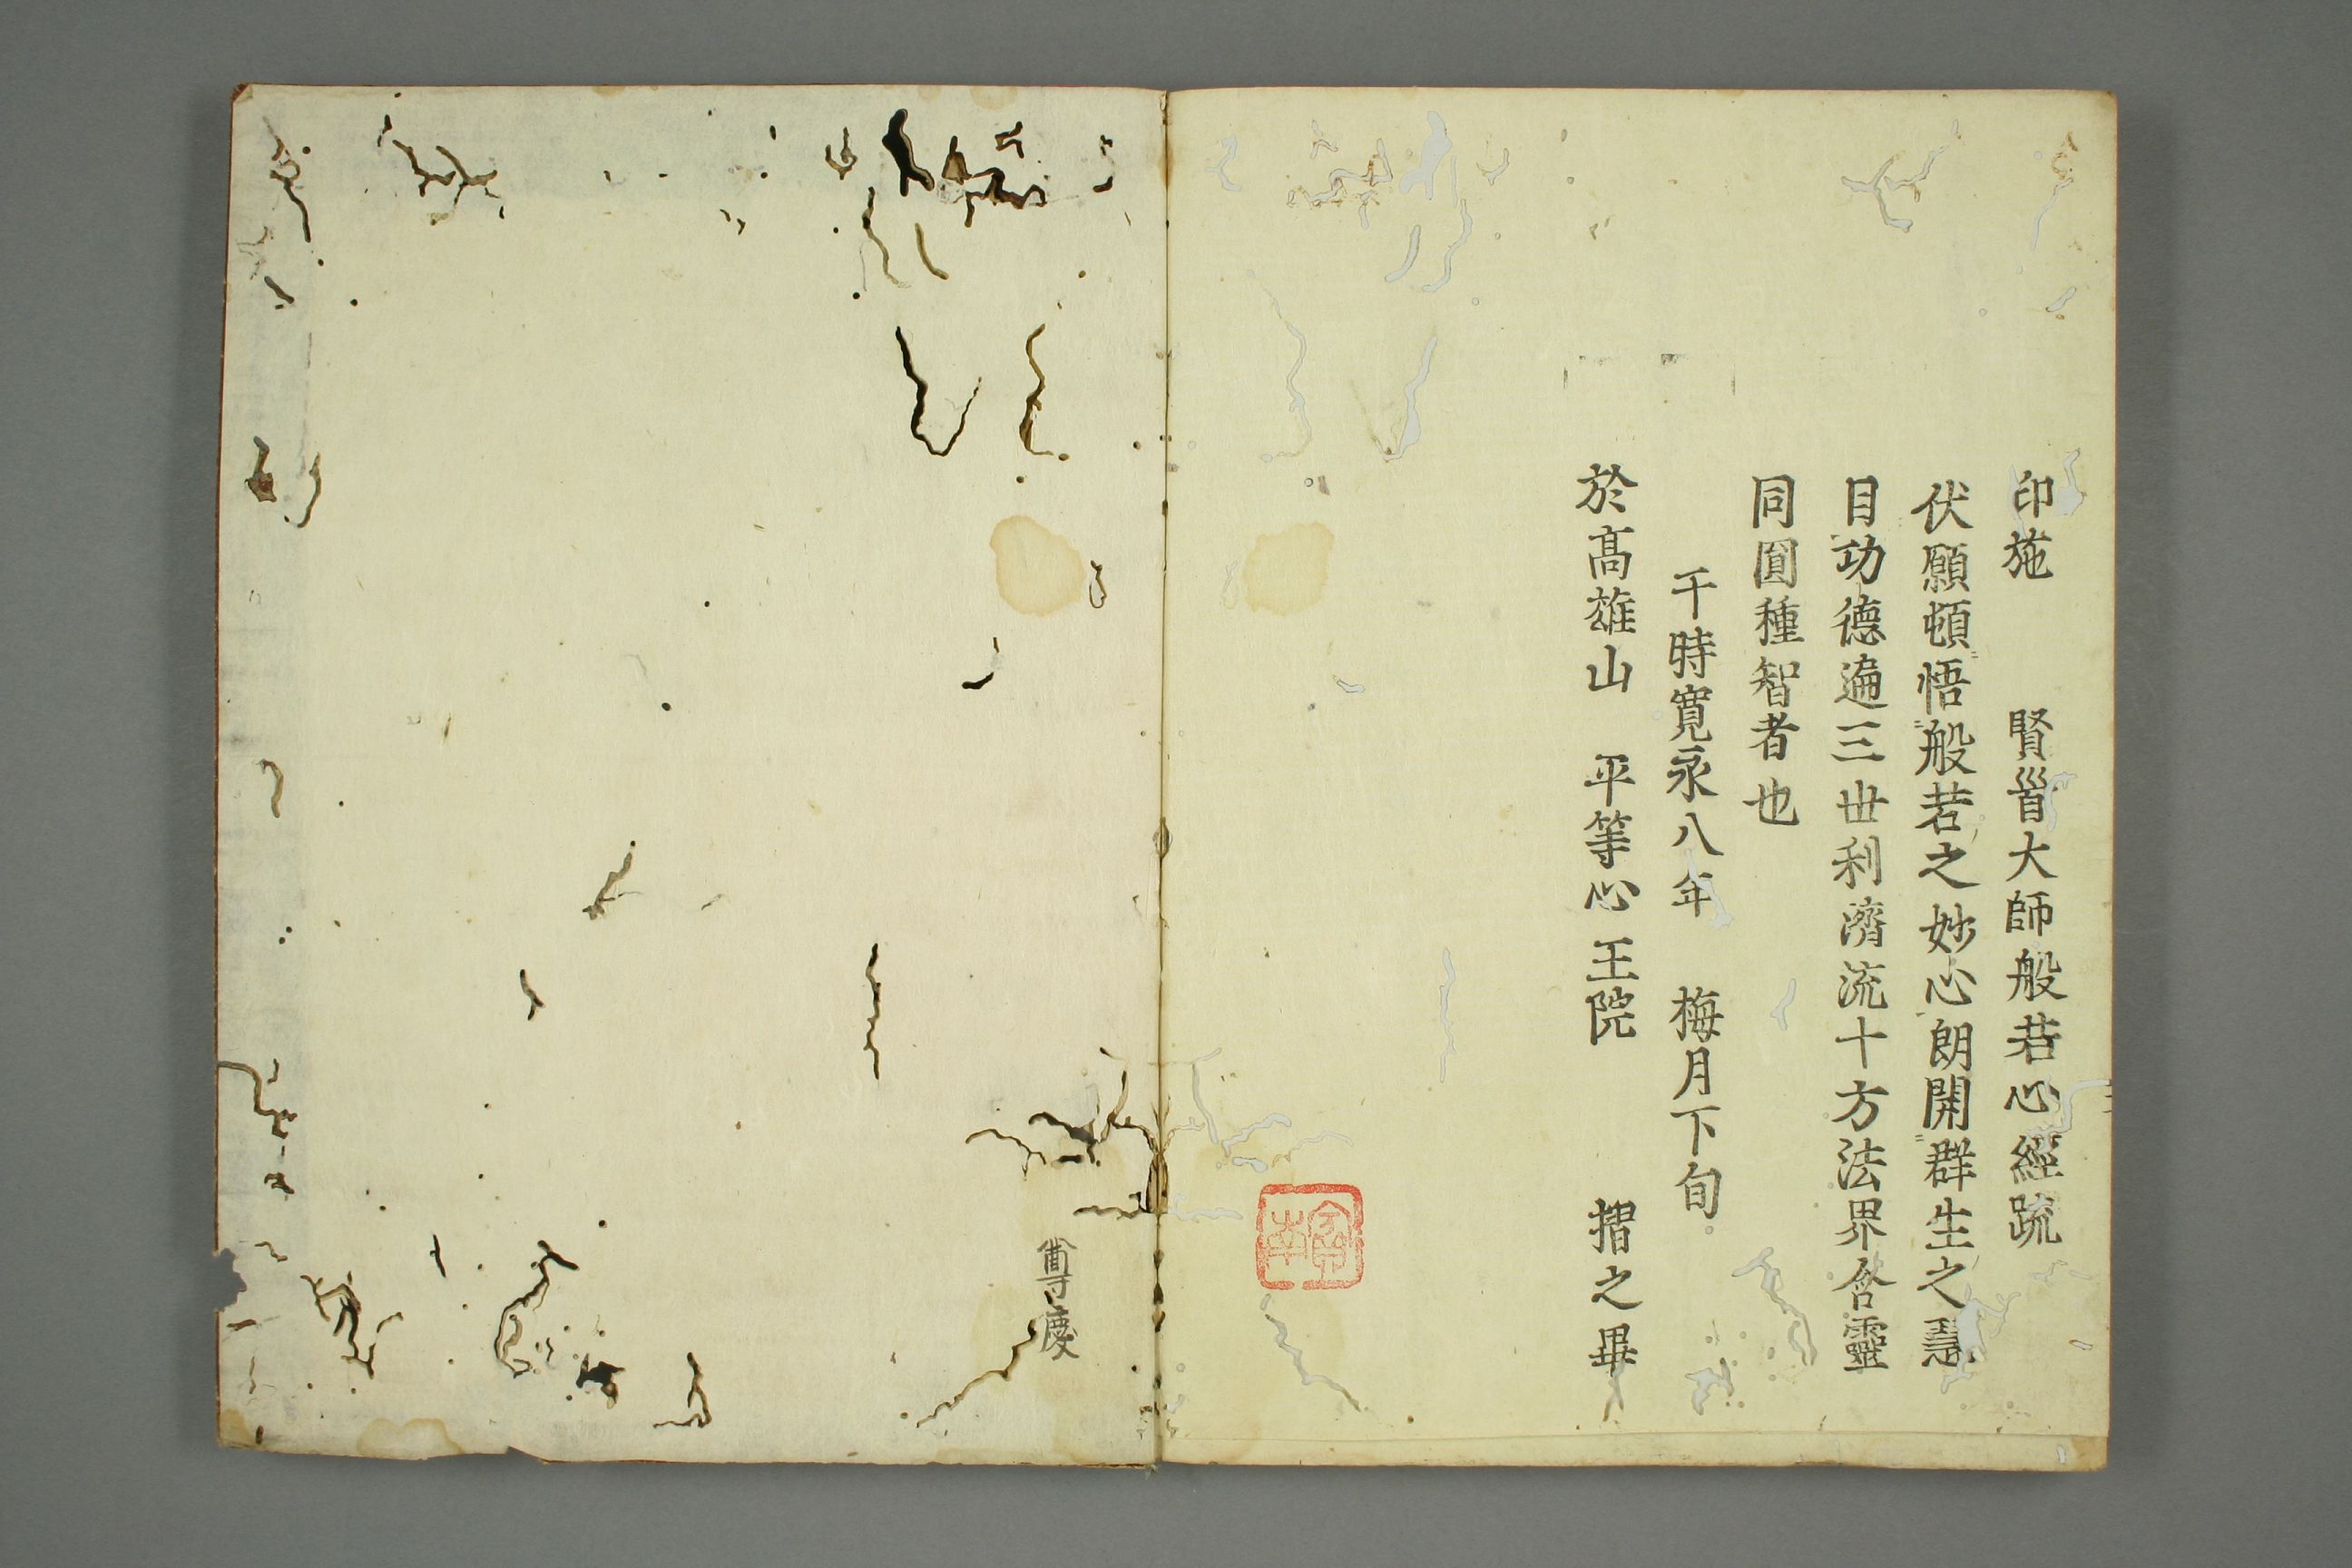 印施　　賢首大師般若心經䟽
伏願頓悟般若之妙心朗開群生之慧
目功德遍三世利濟流十方法界含靈
同圓種智者也
干時寛永八年　梅月下旬
於髙雄山　平等心王院　　摺之畢
尊慶